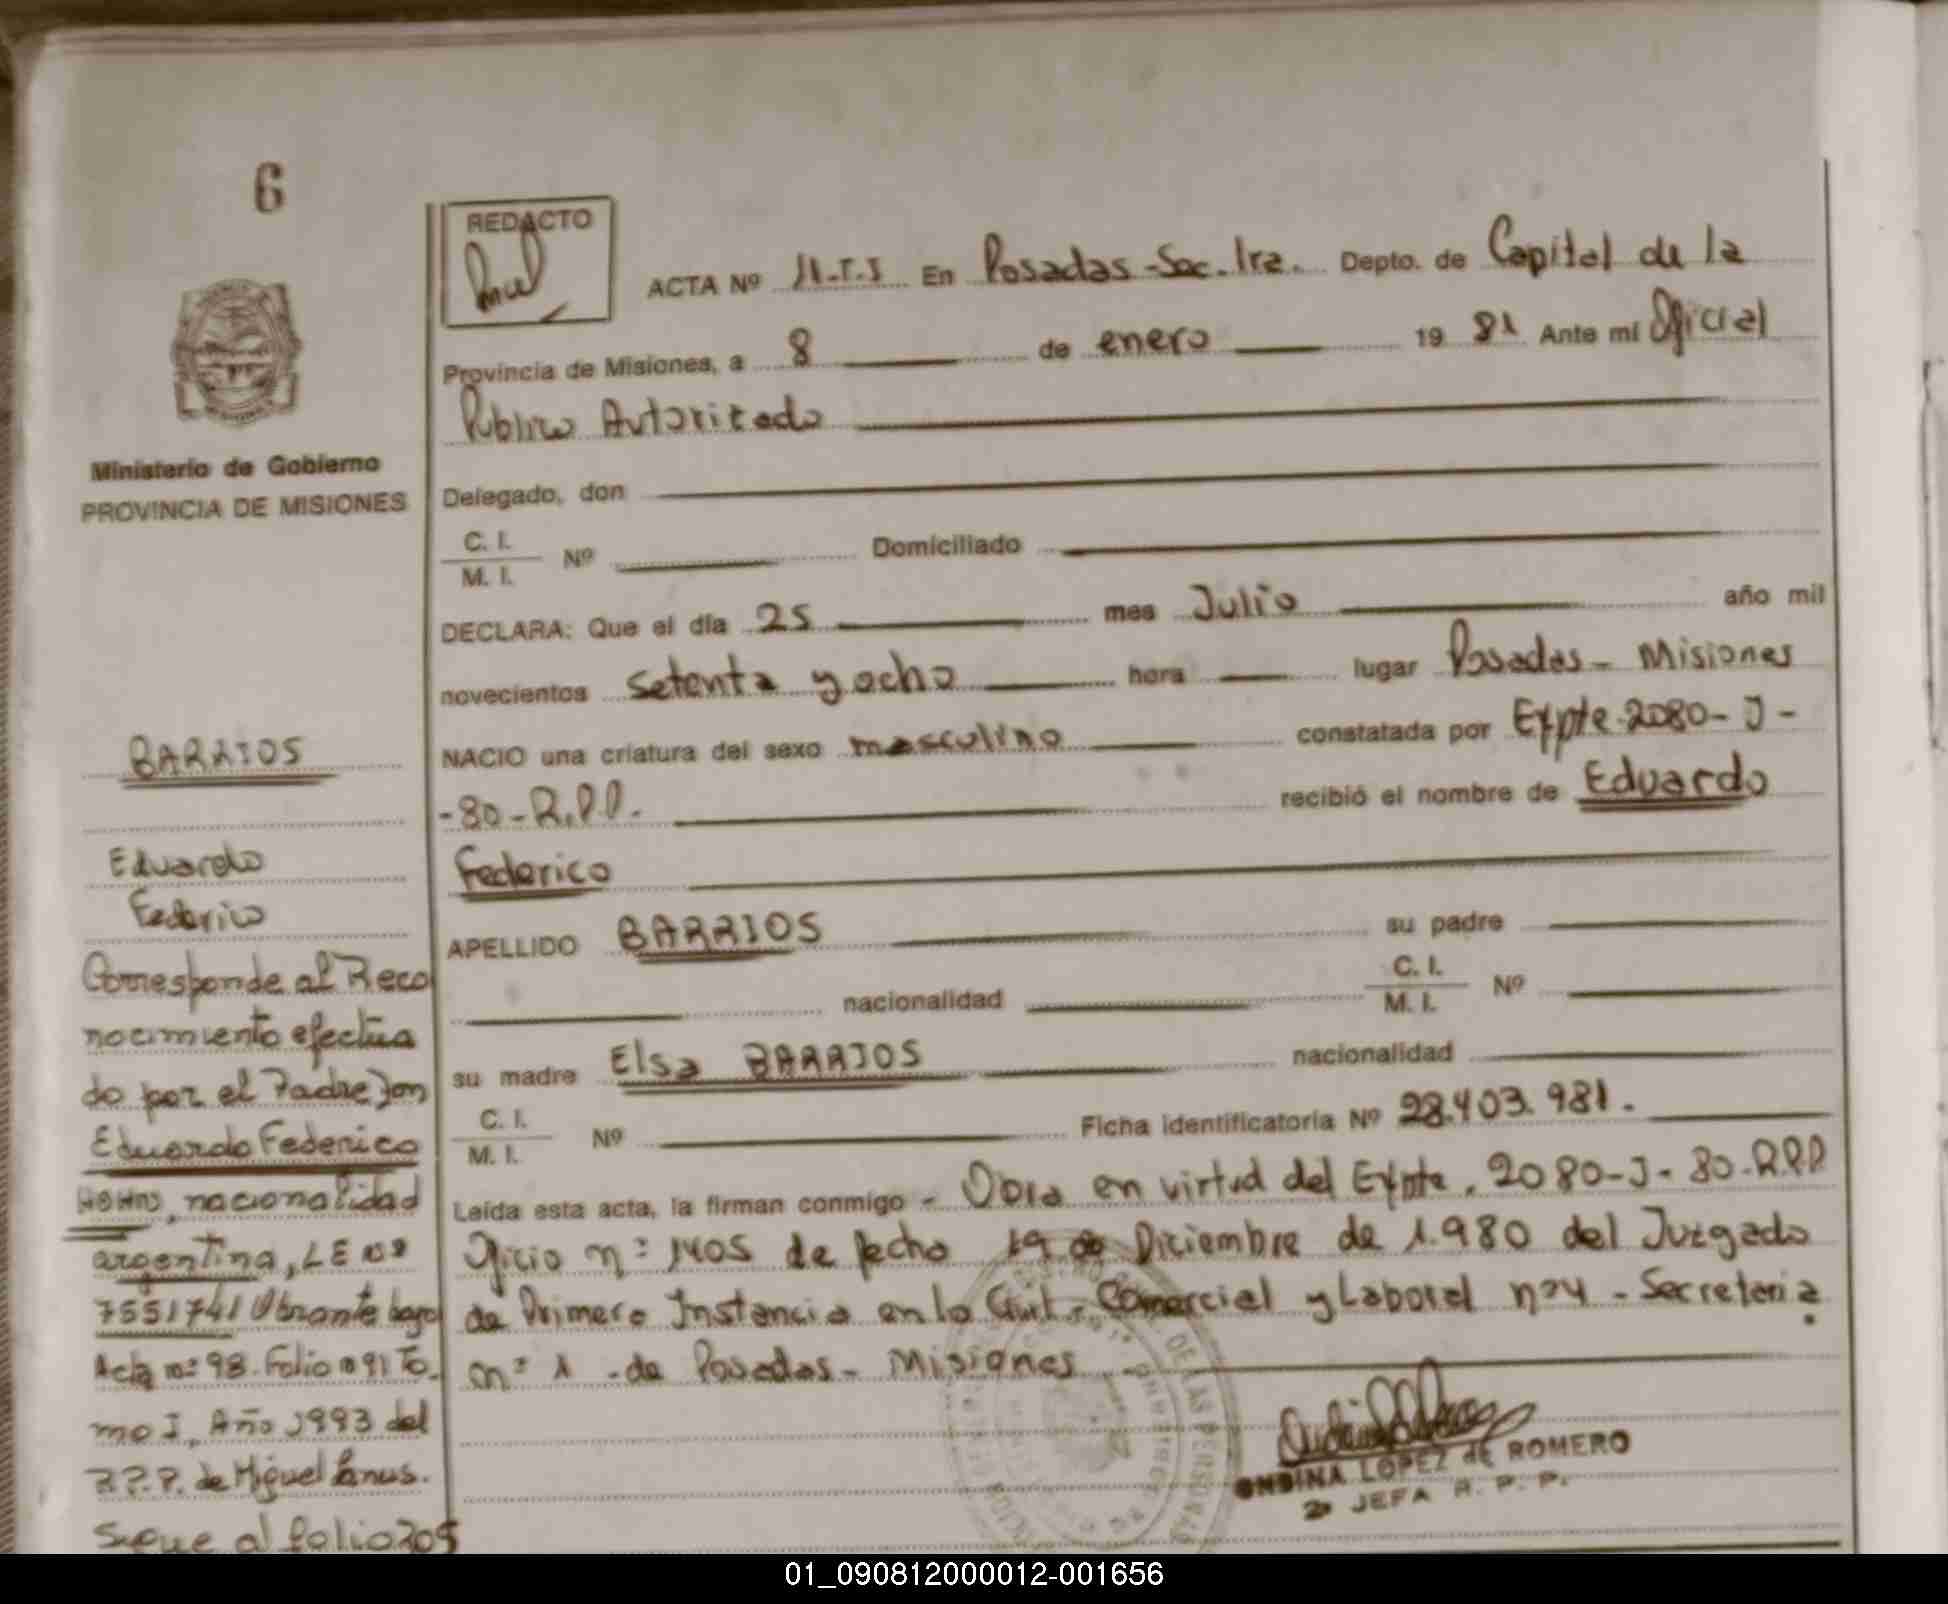 6
REDACTO
ACTA Nº 11-T-I En Posadas-Sec. 1ra. Depto. de Capital de la
Provincia de Misiones, a 8 de enero 19 81 Ante mí Oficial
Publico Autorizado
Ministerio de Gobierno
PROVINCIA DE MISIONES
Delegado, don
C. I.
M. I. Nº Domiciliado
DECLARA: Que el día 25 mes Julio año mil
novecientos setenta y ocho hora lugar Posadas - Misiones
NACIO una criatura del sexo masculino constatada por Expte. 2080- J -
-80-R.P.P. recibió el nombre de Eduardo
Federico
APELLIDO BARRIOS su padre
nacionalidad C. I.
M. I. Nº
su madre Elsa BARRIOS nacionalidad
C. I.
M. I. Nº Ficha identificatoria Nº 28.403.981.
Leída esta acta, la firman conmigo - Obra en virtud del Expte. 2080-J-80-R.P.P
Oficio nº 1405 de fecha 19 de Diciembre de 1.980 del Juzgado
de Primera Instancia en lo Civil, Comercial y Laboral nº4 - Secretaria
nº 1 - de Posadas - Misiones
ONDINA LOPEZ de ROMERO
2º JEFA R. P. P.
BARRIOS
Eduardo
Federico
Corresponde al Reco
nocimiento efectua
do por el Padre Don
Eduardo Federico
nacionalidad
argentina, LE nº
7551741 Obrante bajo
Acta nº 98. Folio nº 91 To
mo I, Año 1993 del
R.P.P. de Miguel Lanus.
Sigue al folio 205
01_090812000012-001656